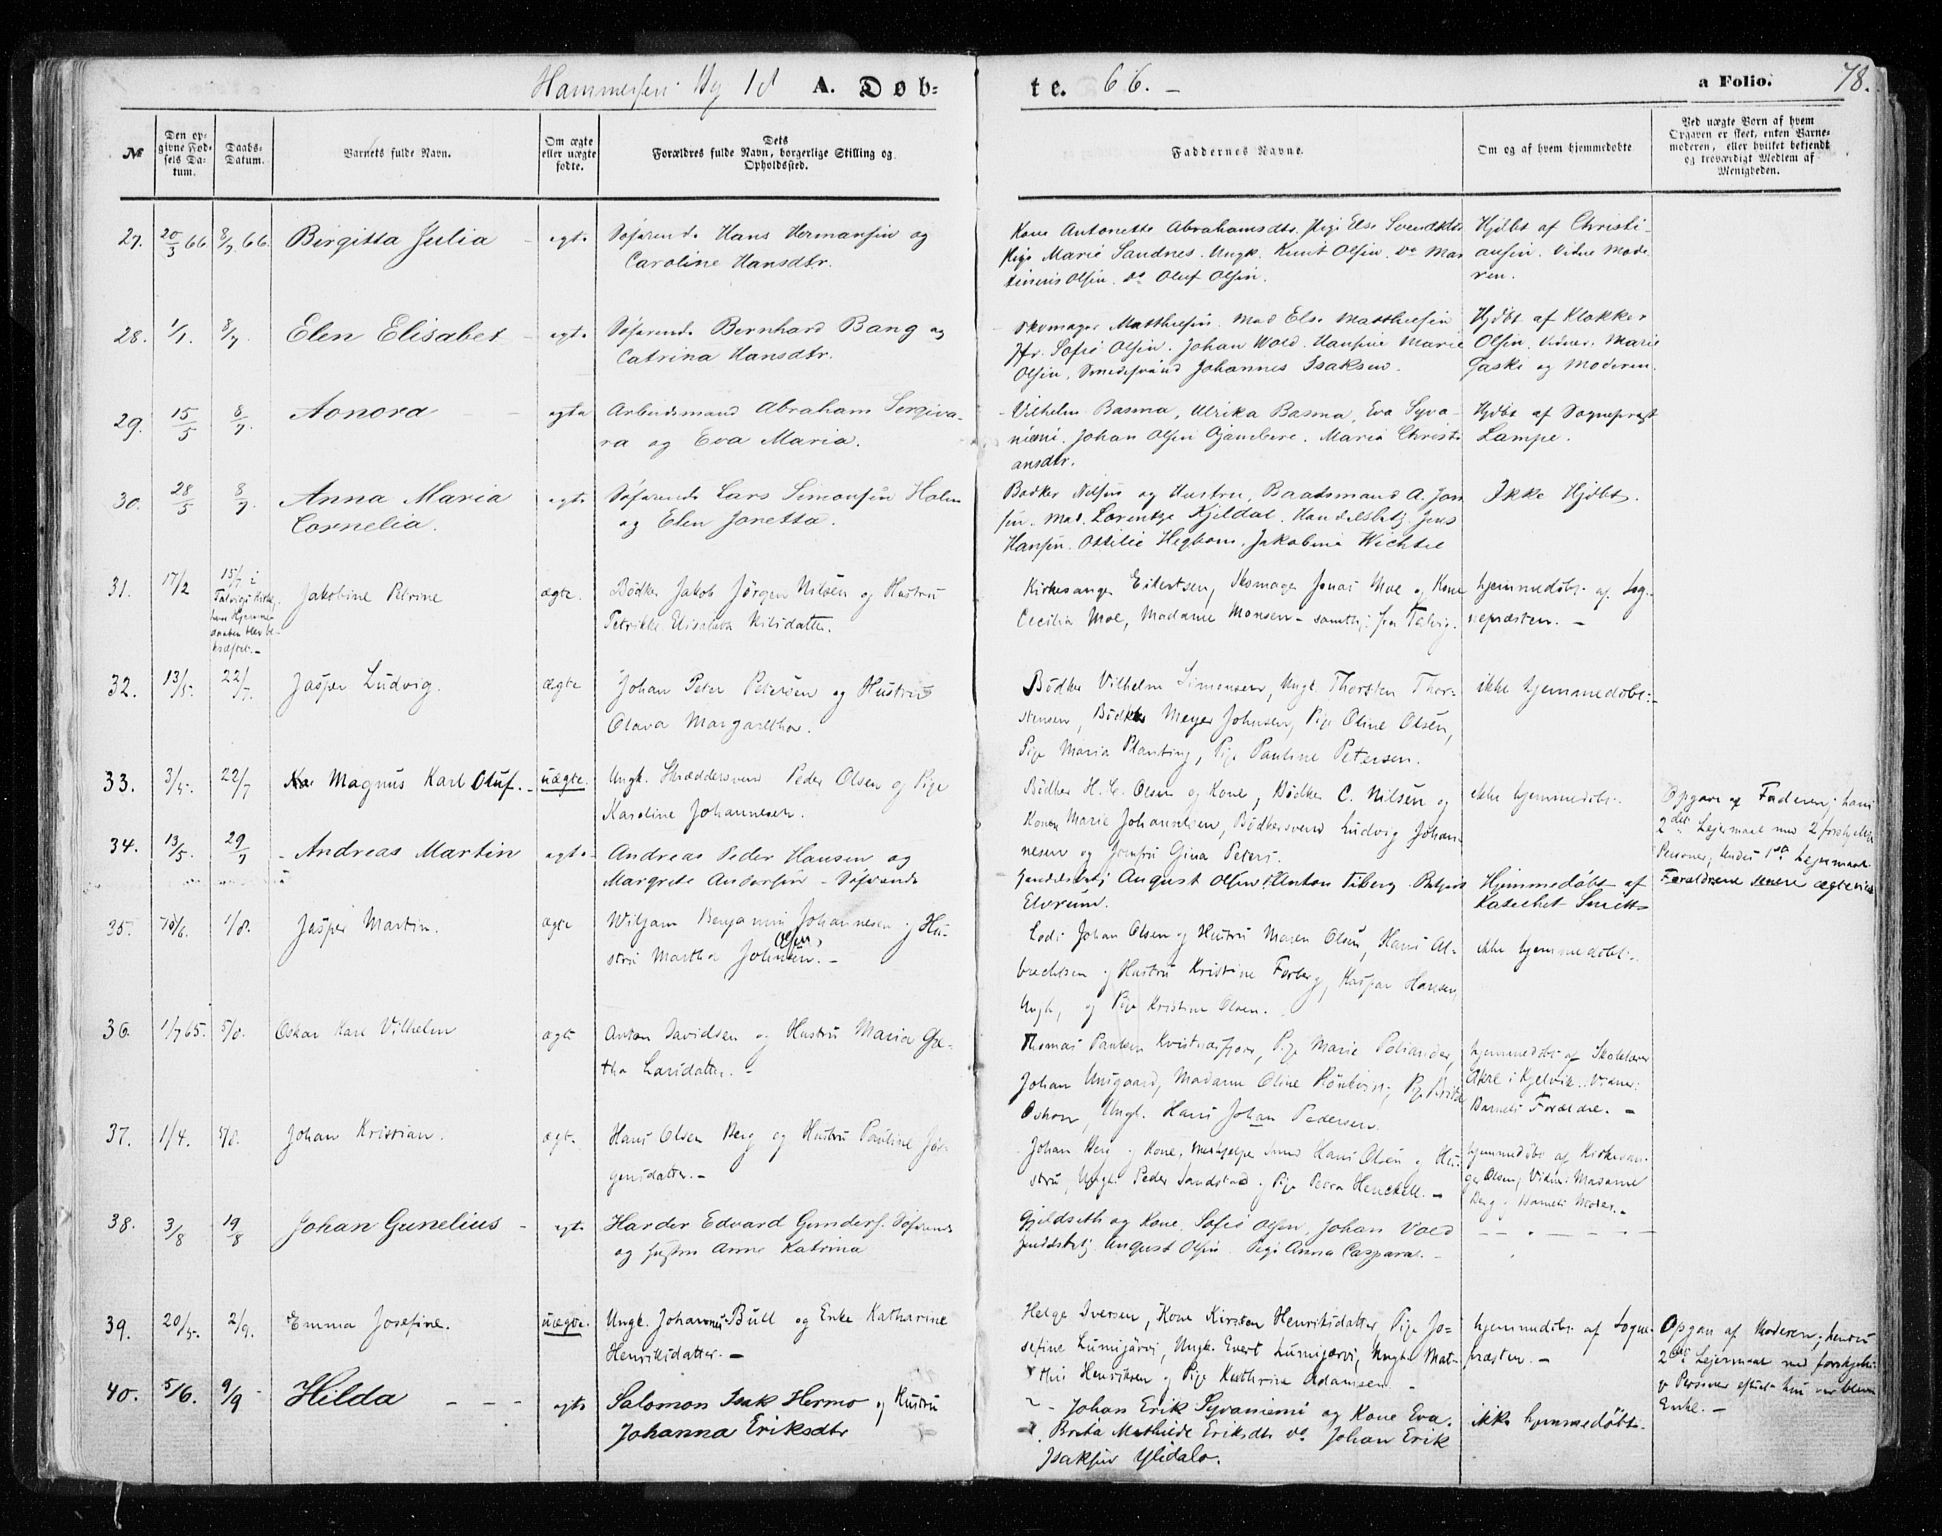 Hammerfest By 18 A. Døb-
te. 66. - a Folio. 78.
№
Den op-
givne Fød-
sels Da-
tum.
Daabs-
Datum.
Barnets fulde Navn.
Om ægte
eller uægte
fødte.
Dets
Forældres fulde Navn, borgerlige Stilling og
Opholdssted.
Faddernes Navne.
Om og af hvem hjemmedøbte
Ved uægte Børn af hvem
Opgaven er skeet, enten Barne-
moderen, eller hvilket bekjendt
og troværdigt Medlem af
Menigheden.
27. 20/3 66 8/7 66. Birgitta Julia - egte Søfarende Hans Hermansen og
Caroline Hansdtr.
Kone Antonette Abrahamsdtr. Pige Else Svendsdtr
Pige Marie Sandnes. Ungk. Knut Olsen. do Mar
tinius Olsen. do Oluf Olsen.
Hjdbt af Christi-
ansen. Vidne Mode
ren.
28. 1/1. 8/7. Elen Elisabet - egte Søfarende Bernhard Bang og
Catrina Hansdtr.
Skomager Matthisen. Mad Else Matthisen
Jfr. Sofie Olsen. Johan Wold. Hansine Marie
Olsen, Smedesvend Johannes Isaksen.
Hjdbt af Klokker
Olsen. Vidner. Marie
Gaske og Moderen.
29. 15/5 8/7. Aonora - - egte Arbeidsmand Abraham Sergiva-
ra og Eva Maria.
Vilhelm Basma, Ulrika Basma, Eva Syva-
niemi. Johan Olsen Gjaubere. Maria Christi
ansdtr.
Hjdbt af Sogneprest
Lampe.
30. 28/5 8/7. Anna Maria
Cornelia. egte Søfarende Lars Simonsen Holm
og Elen Jonetta.
Bødker Nilsen og Hustru, Baadsmand A. Jon
sen. Mad. Lorentze Kjeldal. Handelsbetj. Jens
Hansen. Ottilie Hegbom. Jakobine Wichtel
Ikke Hjdbt.
31. 17/2 15/7 i
Talvigs Kirke,
hvor Hjemme
daaben blev be-
kræftet.-
Jakobine Petrine ægte. Bødker Jakob Jørgen Nilsen og Hustru
Petrikke Elisabeth Nilsdatter.
Kirkesanger Eilertsen, Skomager Jonas Moe og Kone
Cecilia Moe, Madame Monsen - samtl. fra Talvig.
hjemmedøbt af Sog-
nepræsten. -
32. 13/5. 22/7. Jasper Ludvig. ægte Johan Peter Petersen og Hustru
Olava Margarethe.
Bødker Vilhelm Simonsen, Ungk. Thorsten Thor-
stensen, Bødker Meyer Johnsen, Pige Oline Olsen,
Pige Maria Planting, Pige Pauline Petersen.
ikke hjemmedøbt.
33. 3/5. 22/7 Magnus Karl Oluf. - uægte. Ungk. Skræddersvend Peder Olsen og Pige
Karoline Johannesen.
Bødker H. C. Olsen og Kone, Bødker C. Nilsen og
Konen Marie Johannesen, Bødkersvend Ludvig Johan-
nesen og Jomfru Gina Peters.
ikke hjemmedøbt.
Opgave af Faderen; hans
2det Lejermaal med 2 forskjellige
Personer, hendes 1ste Lejermaal.
Forældrene senere ægteviede
34. 13/5. 29/7 - Andreas Martin egte - Andreas Peder Hansen og
Margrete Andersen - Søfarende
Handelsbetj August Olsen. Anton Fiberg. Betjent
Elvrum.
Hjemmedøbt af
Katechet Smitt
35. 10/6. 1/8. Jasper Martin. ægte Wiljam Benjamin Johannesen og Hu-
stru Martha Johnsen. - Olsen,
Lods Johan Olsen og Hustru Maren Olsen, Hans Al-
brechtsen og Hustru Kristine Forberg, Kaspar Hansen
Ungk., og Pige Kristine Olsen.
ikke hjemmedøbt.
36. 1/7 65. 5/8. Oskar Karl Vilhelm ægte Anton Davidsen og Hustru Maria Ga-
tha Larsdatter. -
Thomas Paulsen Kvistnæsfjord, Pige Marie Poliander,
Johan Unsgaard, Madame Oline Rönkvist, Pige Brita
Oskon, Ungk. Hans Johan Pedersen.
hjemmedøbt af Skolelærer
Akre i Kjelvik. Vidner:
Barnets Forældre. -
37. 1/4. 5/8. Johan Kristian. ægte. Hans Olsen Berg og Hustru Pauline Jør-
gensdatter. -
Johan Berg og Kone, Meshjelper Smed Hans Olsen og Hu-
stru, Ungk. Peder Sandstad og Pige Petra Henckell. -
hjemmedøbt af Kirkesan-
ger Olsen, Vidn: Madame
Berg og Barnets Moder. -
38. 3/8 19/8 Johan Gunelius - egte Harder Edvard Gunders. Søfarende
og Hustru Anne Katrina
Gjeldseth og Kone. Sofie Olsen, Johan Vold
Handelsbetj August Olsen. Pige Anna Caspara. -
39. 20/5. 2/9. Emma Josefine. uægte. Ungk. Johannes Bull og Enke Katharine
Henriksdatter. -
Helge Iversen, Kone Kirsten Henriksdatter, Pige Jo-
sefine Lumijärvi, Ungk. Evert Lumijærvi, Ungk. Mat-
this Henriksen og Pige Kathrine Adamsen -
hjemmedøbt af Sogne-
præsten. -
Opgav af Moderen; hendes
2det Lejermaal med forskjelli-
ge Personer efterat hun var bleven
Enke. -
40. 5/6. 9/9 - Hilda - - - egte Salomon Isak Hermo og Hustru
Johanna Eriksdtr
- Johan Erik Syvaniemi og Kone Eva.
Brita Mathilde Eriksdtr do Johan Erik
Isaksen Ylidalo.
ikke hjemmedøbt.